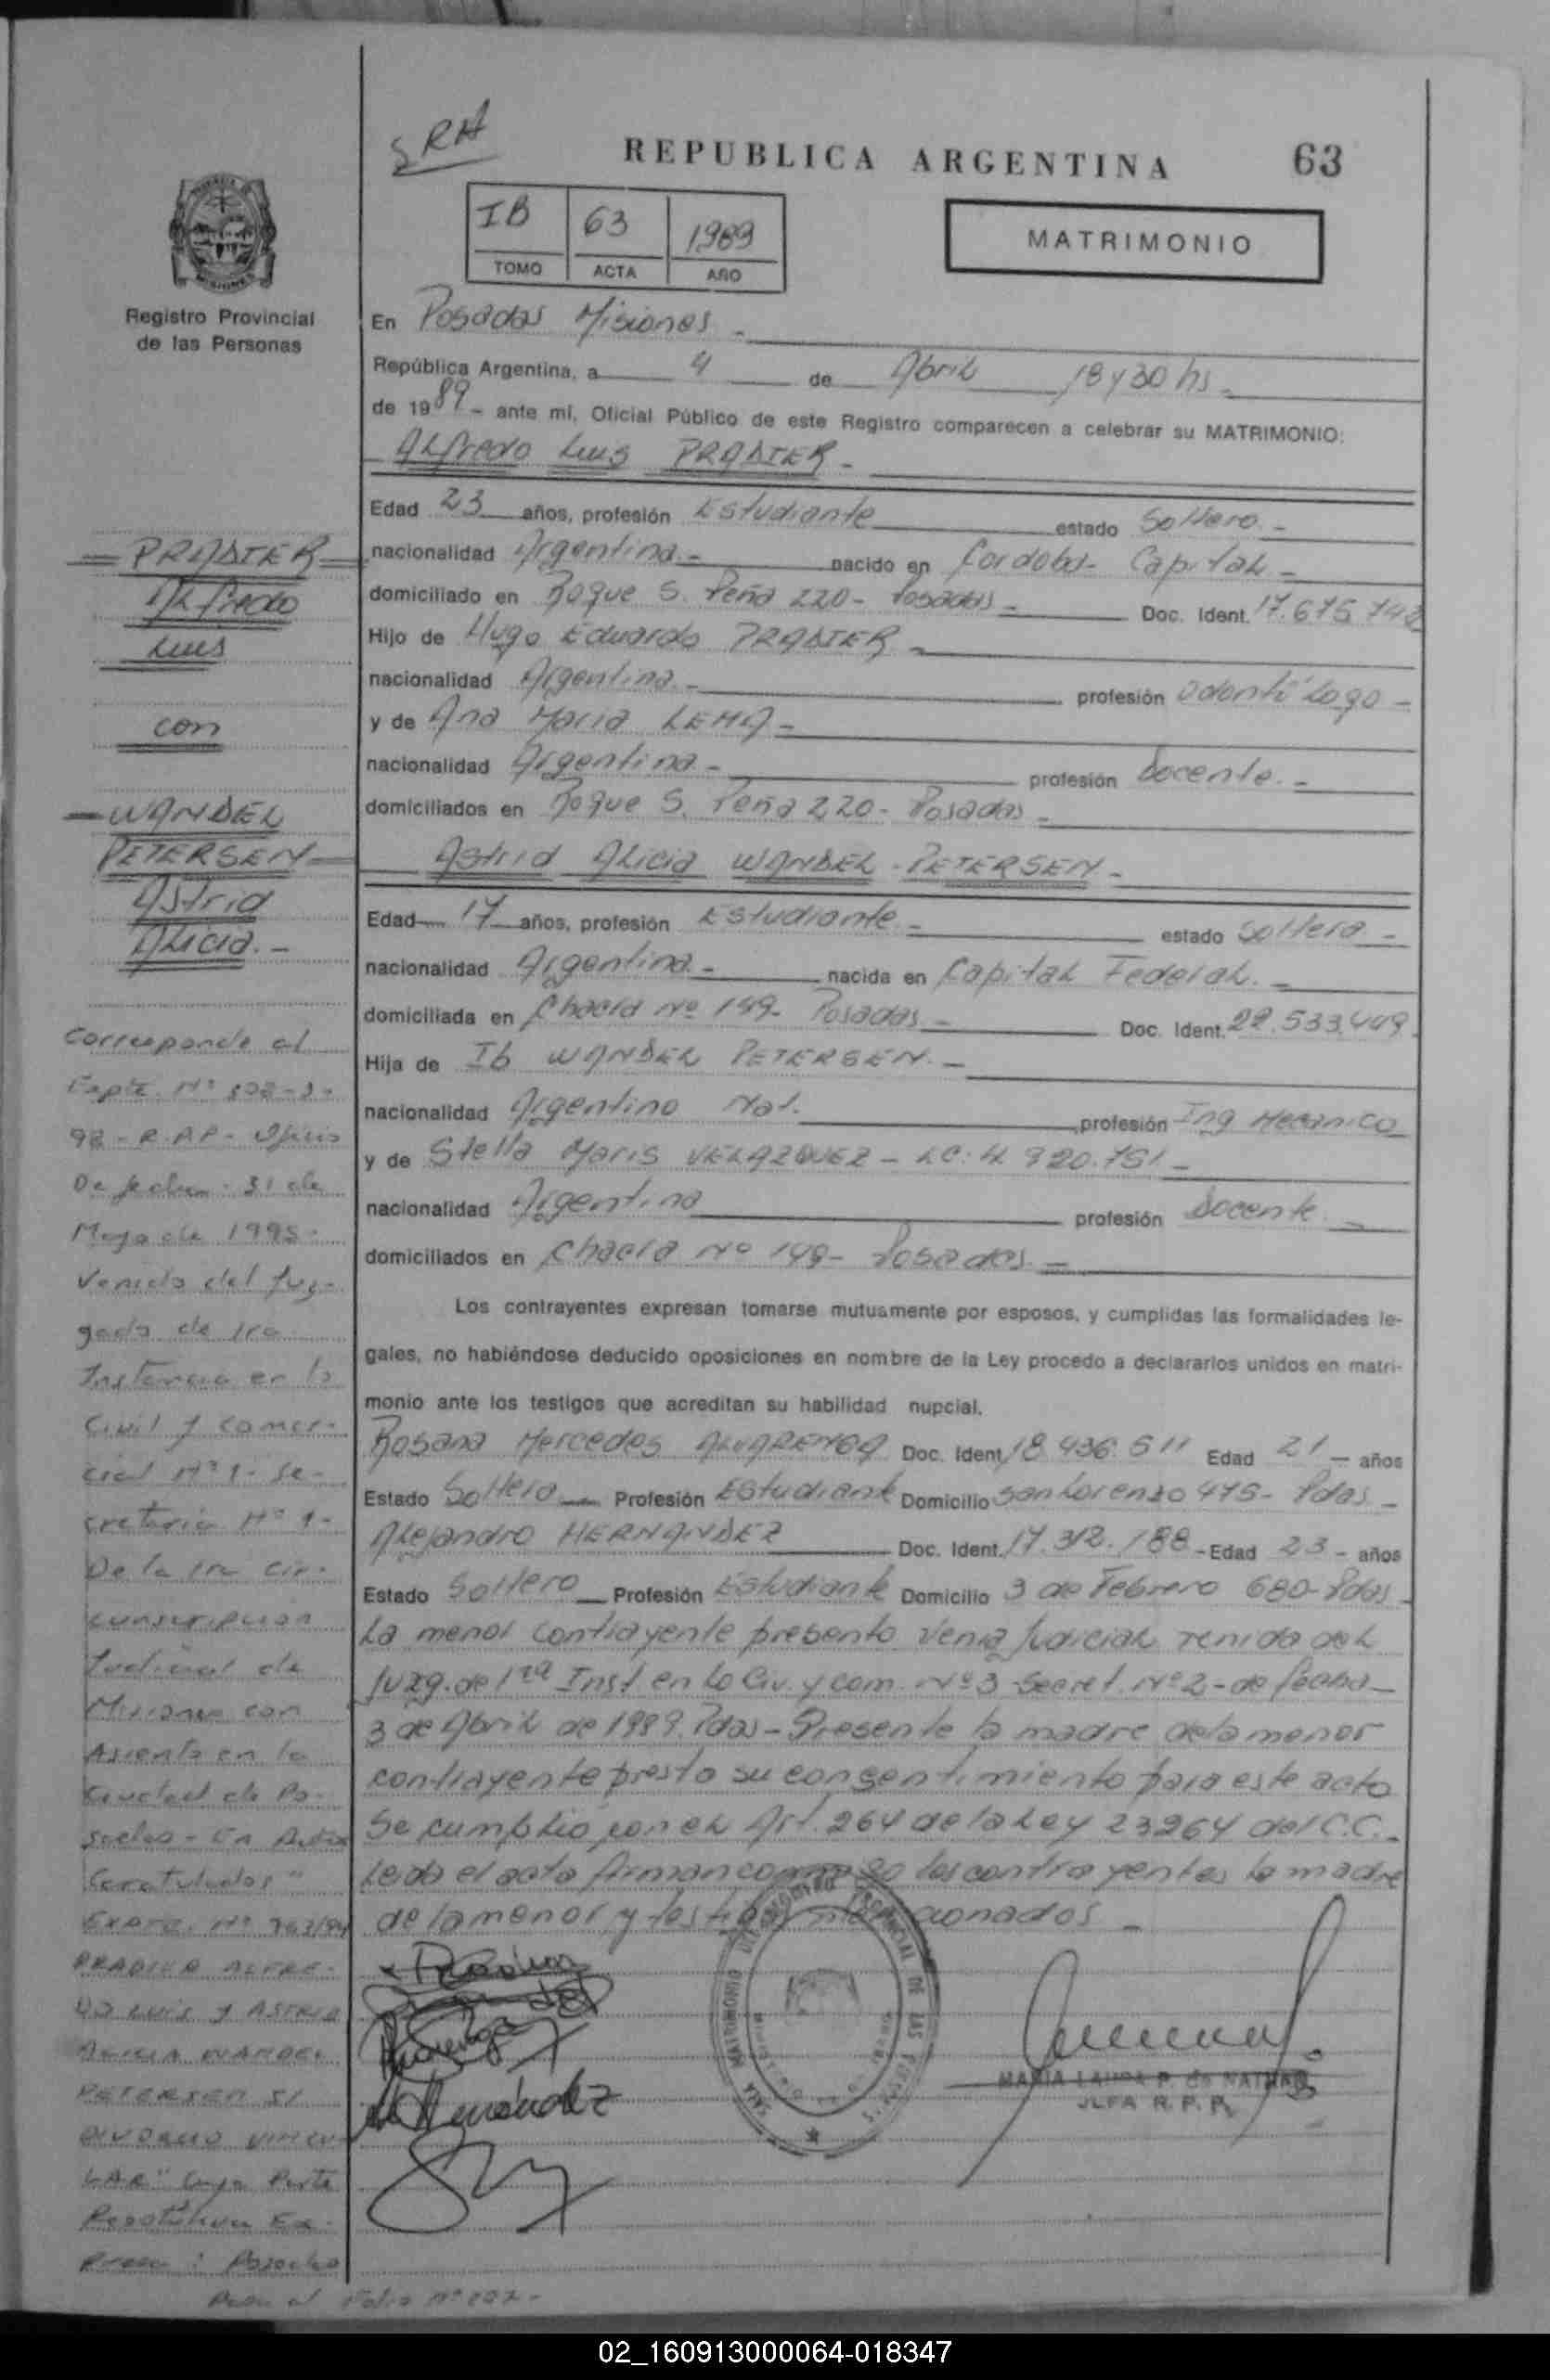 SRA
REPUBLICA ARGENTINA 63
IB 63 1989
TOMO ACTA AÑO
MATRIMONIO
Registro Provincial
de las Personas
En Posadas Misiones -
República Argentina, a 4 de Abril 18 y 30 hs -
de 1989 - ante mí, Oficial Público de este Registro comparecen a celebrar su MATRIMONIO:
Alfredo Luis PRADIER -
Edad 23 años, profesión Estudiante estado Soltero -
nacionalidad Argentina - nacido en Cordoba - Capital -
domiciliado en Roque S. Peña 220 - Posadas - Doc. Ident. 17.675.742
Hijo de Hugo Eduardo PRADIER -
nacionalidad Argentina - profesión Odontólogo -
y de Ana Maria LEMA -
nacionalidad Argentina - profesión Docente. -
domiciliados en Roque S. Peña 220 - Posadas -
Astrid Alicia WANDEL - PETERSEN -
Edad 17 años, profesión Estudiante - estado Soltera -
nacionalidad Argentina - nacida en Capital Federal. -
domiciliada en Chacra Nº 149 - Posadas - Doc. Ident. 22.533.449
Hija de Ib WANDEL PETERSEN. -
nacionalidad Argentino Nat. profesión Ing Mecanico
y de Stella Maris VELAZQUEZ - LC: 4.920.751 -
nacionalidad Argentina profesión Docente. -
domiciliados en Chacra Nº 149 - Posadas. -
Los contrayentes expresan tomarse mutuamente por esposos, y cumplidas las formalidades le-
gales, no habiéndose deducido oposiciones en nombre de la Ley procedo a declararlos unidos en matri-
monio ante los testigos que acreditan su habilidad nupcial.
Rosana Mercedes ALVARENGA Doc. Ident. 18.436.511 Edad 21 - años
Estado Soltera - Profesión Estudiante Domicilio San Lorenzo 475 - Pdas -
Alejandro HERNANDEZ Doc. Ident. 17.312.188 - Edad 23 - años
Estado Soltero - Profesión Estudiante Domicilio 3 de Febrero 680 - Pdas -
La menor contrayente presento Venia Judicial venida del
Juzg. de 1ra Inst. en lo Civ. y Com. Nº 3 Secret. Nº 2 - de fecha -
3 de Abril de 1989. Pdas - Presente la madre de la menor
contrayente presto su consentimiento para este acto
Se cumplio con el Art. 264 de la Ley 23264 del C.C. -
Leida el acta firman conmigo los contrayentes la madre
de la menor y testigos mencionados -
MARIA LAURA P. de
JEFA R. P. P.
PRADIER
Alfredo
Luis
con
WANDEL
PETERSEN
Astrid
Alicia. -
Corresponde al
Expte. Nº
98 - R.P.P - Oficio
De fecha 31 de
Mayo de 1995 -
Venido del Juz-
gado de 1ra
Instancia en lo
Civil y Comer-
cial Nº 1 - Se-
cretaria Nº 1 -
De la 1ra Cir-
cunscripcion
Judicial de
Misiones con
Asiento en la
Ciudad de Po-
sadas - En Autos
Caratulados "
Expte. Nº 963/94
PRADIER ALFRE-
DO LUIS Y ASTRID
ALICIA WANDEL
PETERSEN S/
DIVORCIO VINCU-
LAR" Cuya Parte
Resolutiva Ex-
presa: Posadas
Pasa al Folio Nº
02_160913000064-018347